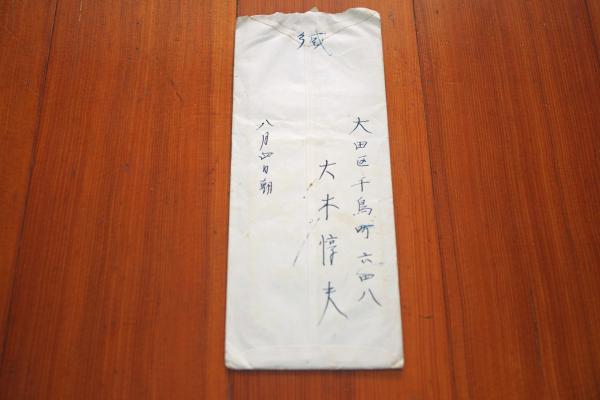 緘
大田区千鳥町六四八
大木惇夫
八月四日朝